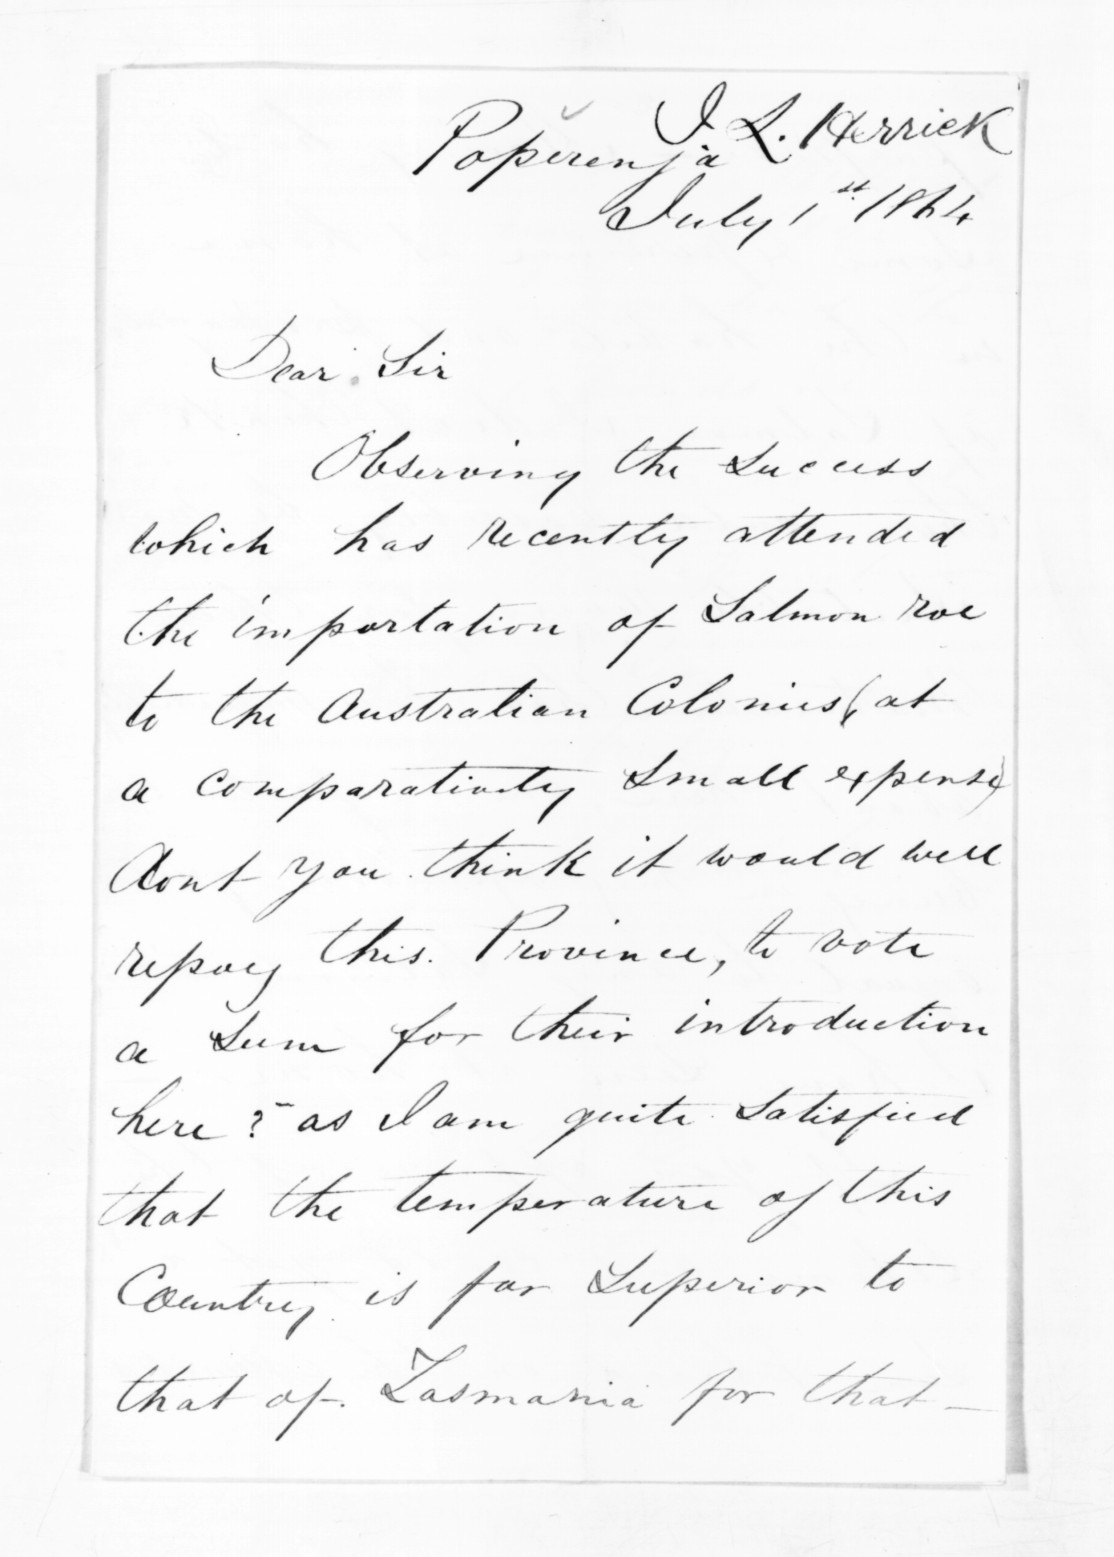 J. L. Herrick
Papurenga
July 1st 1864
Dear Sir
Observing the success
which has recently attended
the importation of Salmon roe
to the Australian Colonies (at
a comparatively small expense)
dont you think it would well
repay this Province, to vote
a sum for their introduction
here? - as I am quite satisfied
that the temperature of this
Country is far superior to
that of Tasmania for that -